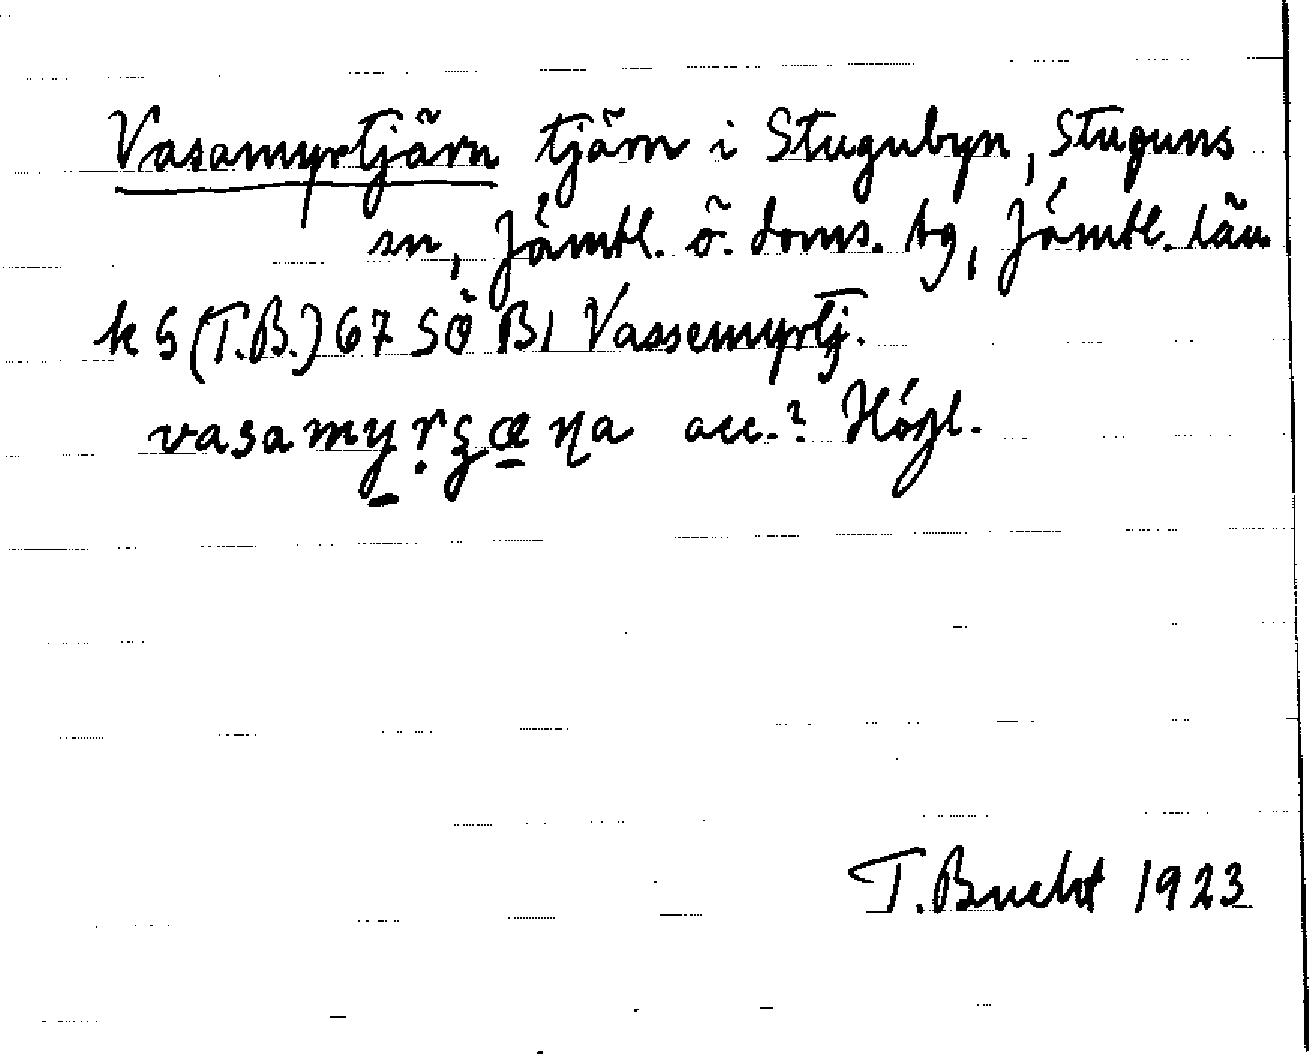 Vasamyrtjärn tjärn i Stugubyn, Stuguns
sn, Jämtl. ö. doms. tg, Jämtl. län
k 5 (T.B.) 67 SÖ B1 Vassemyrtj.
vasamy̲ṛʒæ̲ɳa acc.? Högl.
T. Bucht 1923